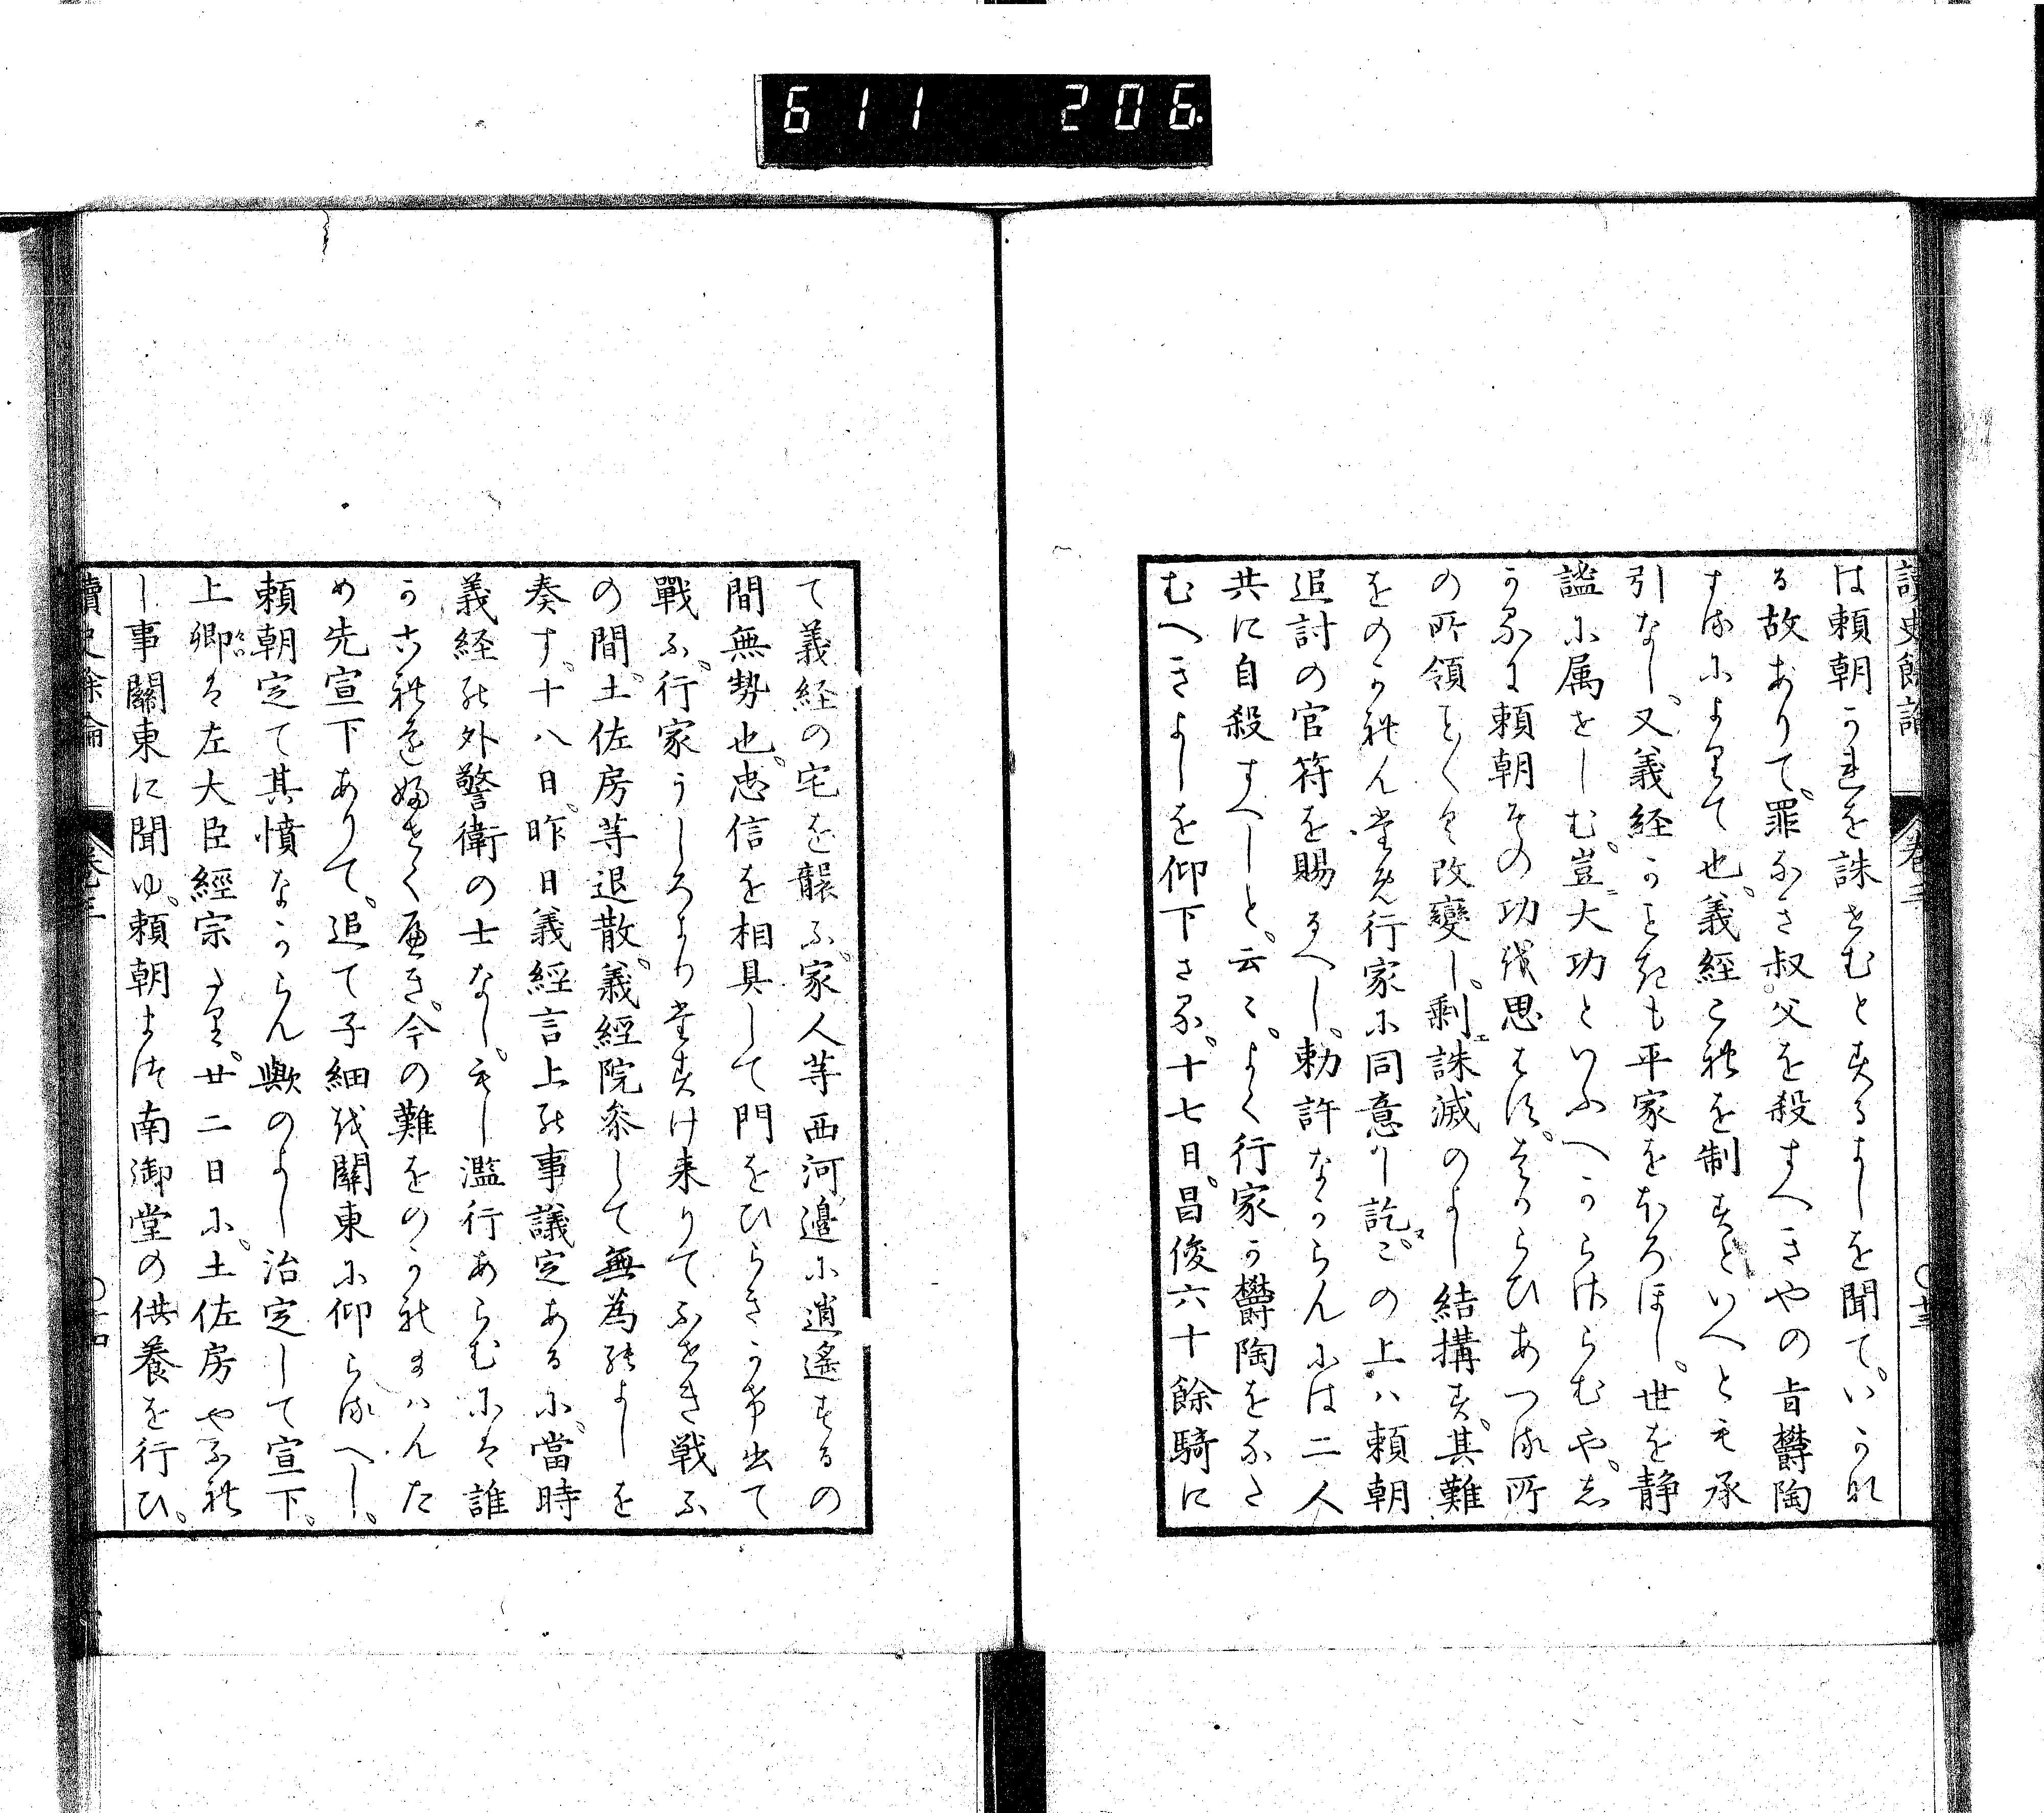 611 206
讀史餘論 卷三 〇廿三
は頼朝これを誅せむとするよしを聞て。いかな
る故ありて。罪なき叔父を殺すへきやの旨欝陶
するによりて也。義經これを制すといへとも承
引なし。又義経かことも平家をほろほし。世を静
謐に属せしむ。豈ニ大功といふへからさらむや。志
かるに頼朝その功を思はす。はからひあつる所
の所領ことことく改變し。剰エ誅滅のよし結構す。其難
をのかれん為行家に同意し訖ヌ。この上ハ頼朝
追討の官符を賜るへし。勅許なからんには二人
共に自殺すへしと。云々。よく行家か欝陶をなさ
むへきよしを仰下さる。十七日。昌俊六十餘騎に
て義経の宅を襲ふ。家人等西河邊に逍遙するの
間無勢也。忠信を相具して門をひらきかけ出て
戰ふ。行家うしろより堂すけ来りてふせき戦ふ
の間。土佐房等退散。義經院参して無為のよしを
奏す。十八日。昨日義經言上の事議定あるに。當時
義経の外警衛の士なし。もし濫行あらむには誰
かこれを婦せくへき。今の難をのかれ給ハんた
め先宣下ありて。追て子細を關東に仰らるへし。
頼朝定て其憤なからん歟のよし治定して宣下。
上卿は左大臣經宗たり。廿二日に。土佐房やふれ
し事關東に聞ゆ。頼朝まつ南御堂の供養を行ひ。
讀史餘論 卷三 〇廿四